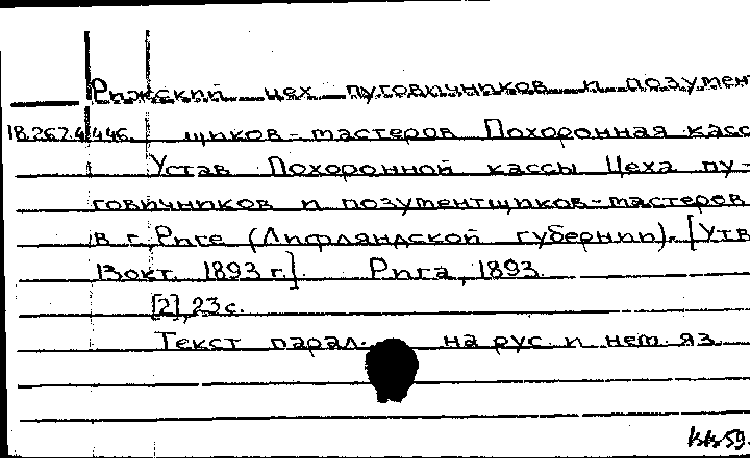 Рижский цех пуговичников и позумен
18.267.4.446. щиков-мастеров Похоронная касс
Устав Похоронной кассы Цеха пу-
говичников и позументщиков-мастеров
в г. Риге (Лифляндской губернии). [Утв
13 окт. 1893 г.]. Рига, 1893.
[2], 23 с.
Текст парал. на рус. и нем. яз.